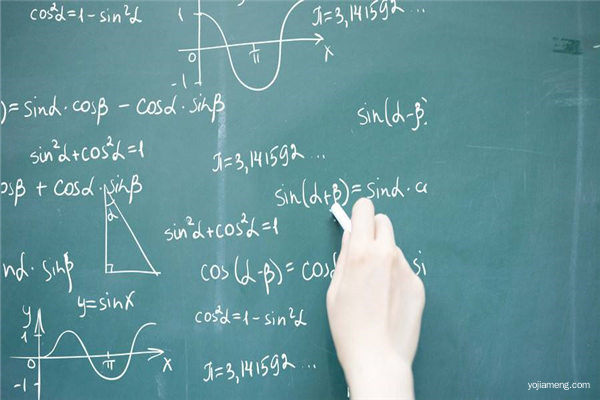 cos²α=1-sin²α
1
0
π
x
-1
π=3,141592...
)=sinα·cosβ-cosα·sinβ
sin(α-β)
sin²α+cos²α=1
π=3,141592...
osβ+cosα·sinβ
α
sin(α+β)=sinα·c
sin²α+cos²α=1
nα·sinβ
cos(α-β)=cos
si
y=sinx
cos²α=1-sin²α
y
1
0
π
x
-1
π=3,141592...
yojiameng.com